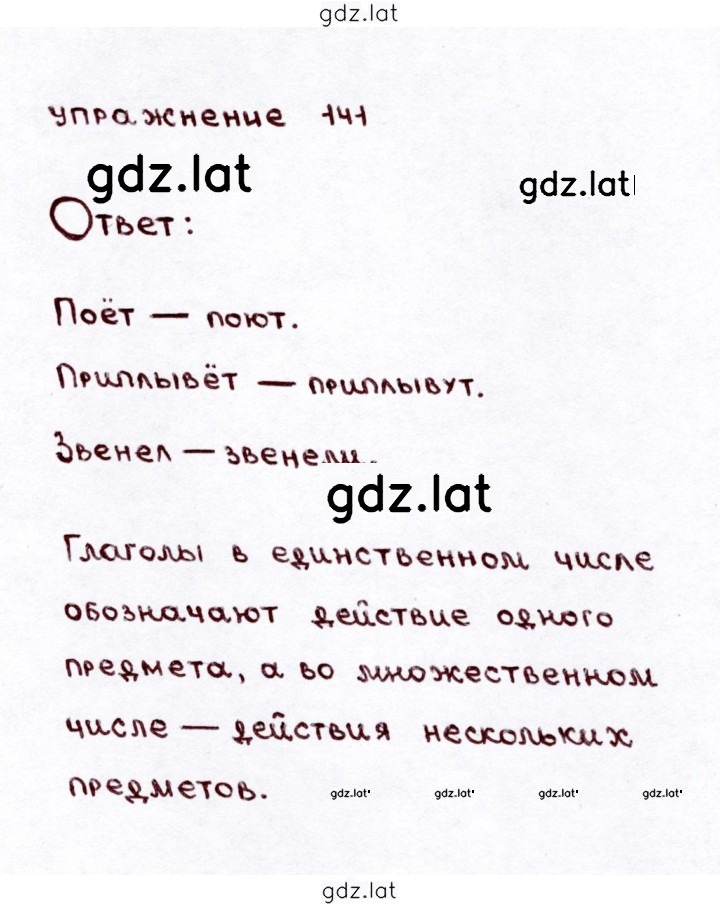 gdz.lat
упражнение 141
gdz.lat
gdz.lat
Ответ:
Поёт — поют.
Приплывёт — приплывут.
Звенел — звенели.
gdz.lat
Глаголы в единственном числе
обозначают действие одного
предмета, а во множественном
числе — действия нескольких
предметов.
gdz.lat gdz.lat gdz.lat gdz.lat
gdz.lat